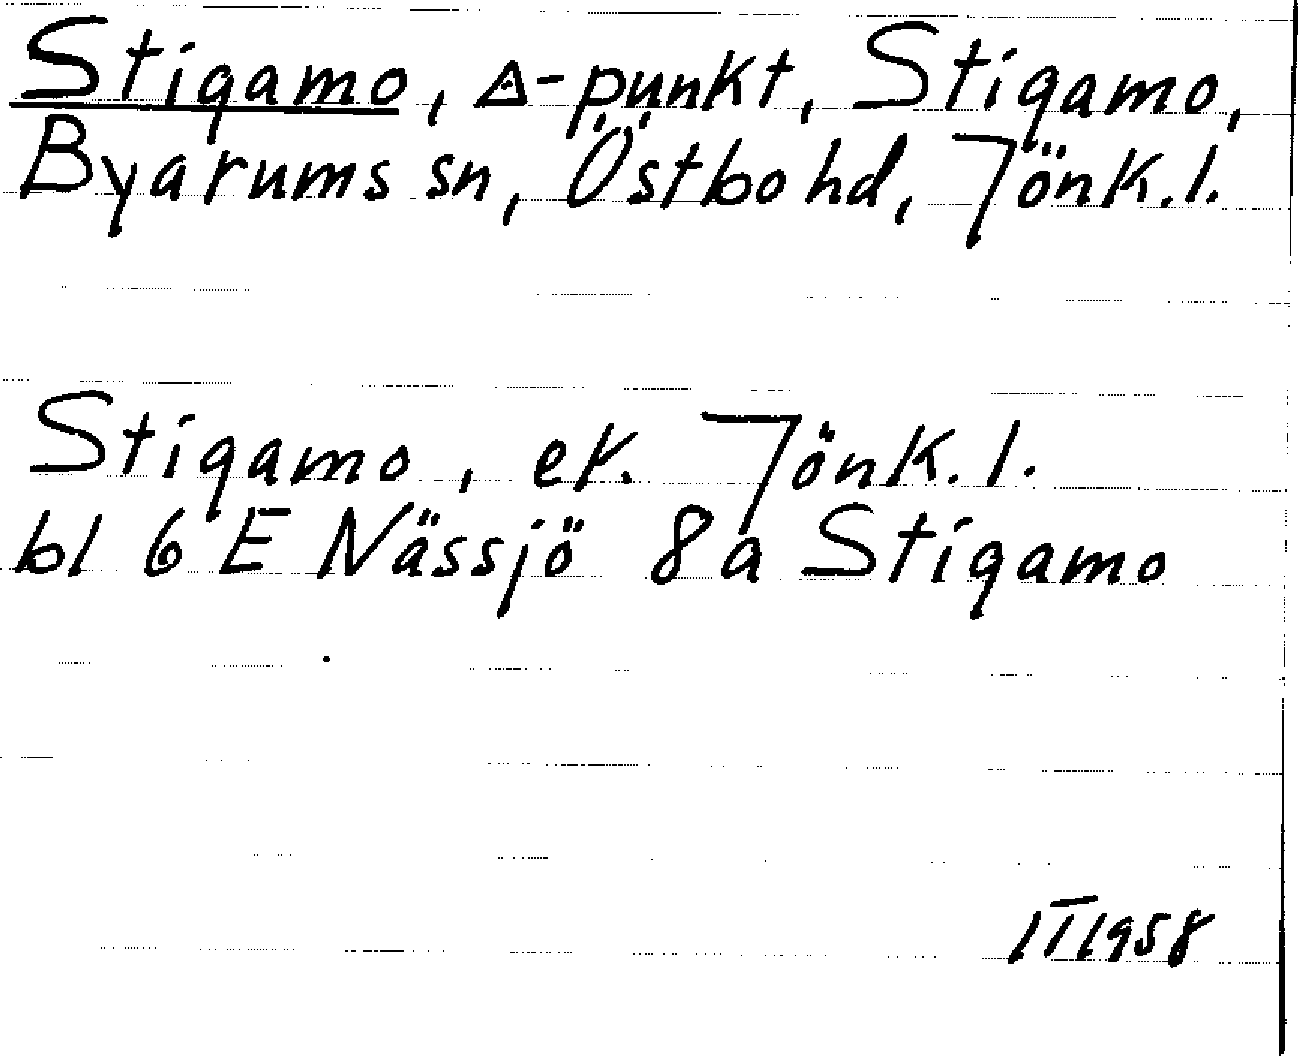 Stigamo, △-punkt, Stigamo,
Byarums sn, Östbo hd, Jönk.l.
Stigamo, ek. Jönk.l.
bl 6 E Nässjö 8 a Stigamo
1958